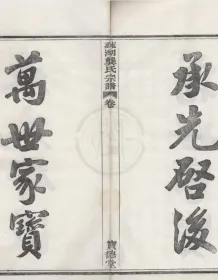 承先啓後
龔氏宗譜
卷
寶德堂
萬世家寶